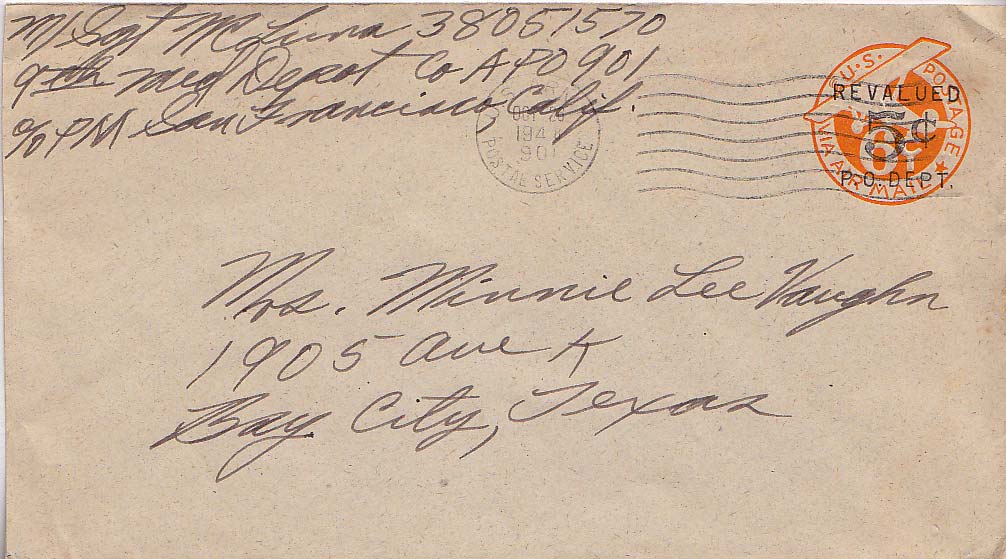 M/Sgt McLuna 38051570
9th Med Depot Co APO 901
c/o PM San Francisco Calif.
U.S. POSTAGE
REVALUED
5¢
6¢
P.O. DEPT.
VIA AIR MAIL
OCT
194
901
POSTAL SERVICE
Mrs. Minnie Lee Vaughn
1905 Ave K
Bay City, Texas